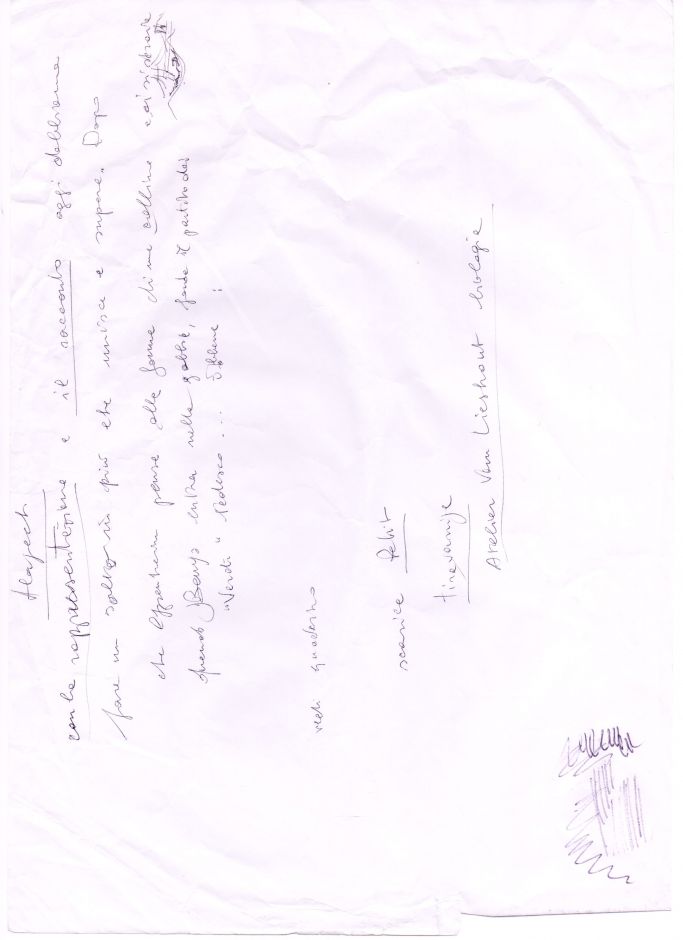 contro rappresentazione e il racconto oggi dobbiamo
fare un salto in più che unisca e superi. Dopo
che Oppenheim pensa alla forma di una collina
quando Beuys entra nella gabbia, fonda il partito dei
"Verdi" Tedesco... Ebbene :
vedi quaderno
scarice Petit
tiravanija
Atelier Van Lieshout biologia